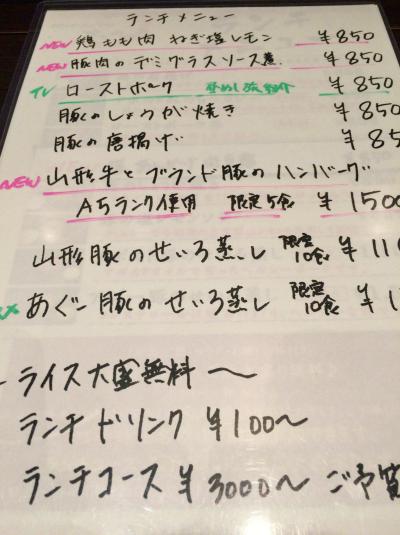 ランチメニュー
NEW 鶏もも肉 ねぎ塩レモン ¥850
NEW 豚肉のデミグラスソース煮 ¥850
TV ローストポーク ¥850
豚のしょうが焼き ¥850
豚の唐揚げ ¥85
NEW 山形牛とブランド豚のハンバーグ
A5ランク使用 限定5食 ¥1500
山形豚のせいろ蒸し 限定10食 ¥11
あぐー豚のせいろ蒸し 限定10食 ¥1
～ライス大盛無料～
ランチドリンク ¥100～
ランチコース ¥3000～ ご予